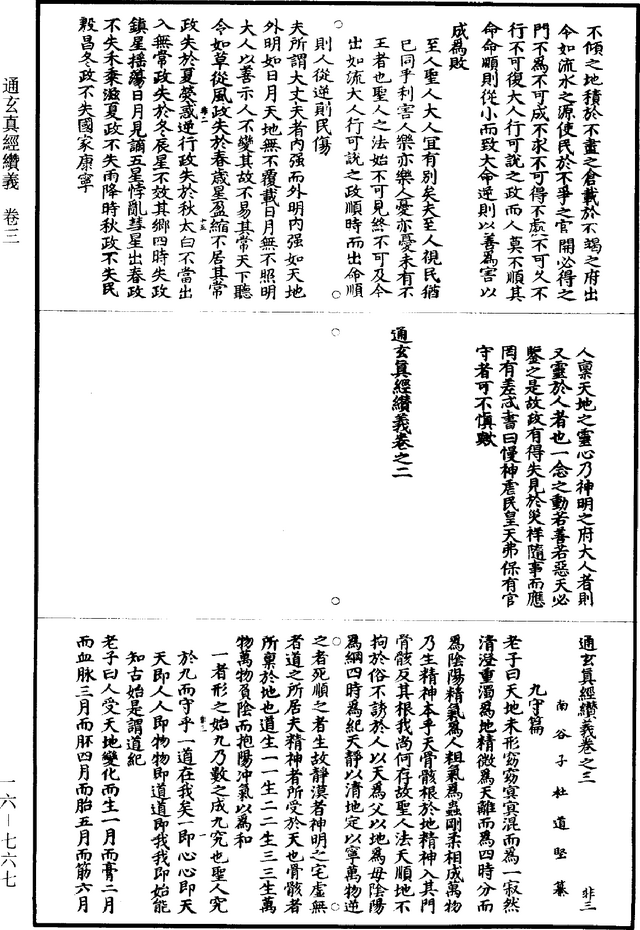 不傾之地積於不盡之倉載於不竭之府出
令如流水之源使民於不爭之官開必得之
門不為不可成不求不可得不處不可久不
行不可復大人行可說之政而人莫不順其
命命順則從小而致大命逆則以善為害以
成為敗
至人聖人大人宜有別矣夫至人視民猶
已同乎利害人樂亦樂人憂亦憂未有不
王者也聖人之法始不可見終不可及令
出如流大人行可說之政順時而出命順
則人從逆則民傷
夫所謂大丈夫者內強而外明內強如天地
外明如日月天地無不覆載日月無不照明
大人以善示人不變其故不易其常天下聽
令如草從風政失於春歲星盈縮不居其常
政失於夏熒惑逆行政失於秋太白不當出
入無常政失於冬辰星不效其鄉四時失政
鎮星搖蕩日月見謫五星悖亂彗星出春政
不失禾黍滋夏政不失雨降時秋政不失民
殷昌冬政不失國家康寧
人稟天地之靈心乃神明之府大人者則
又靈於人者也一念之動若善若惡天必
鑒之是故政有得失見於災祥隨事而應
罔有差忒書曰慢神虐民皇天弗保有官
守者可不慎歟
通玄真經纘義卷之二
通玄真經纘義卷之三 非三
南谷子杜道堅纂
九守篇
老子曰天地未形窈窈冥冥混而為一寂然
清澄重濁為地精微為天離而為四時分而
為陰陽精氣為人粗氣為蟲剛柔相成萬物
乃生精神本乎天骨骸根於地精神入其門
骨骸反其根我尚何存故聖人法天順地不
拘於俗不誘於人以天為父以地為母陰陽
為綱四時為紀天靜以清地定以寧萬物逆
之者死順之者生故靜漠者神明之宅虛無
者道之所居夫精神者所受於天也骨骸者
所稟於地也道生一一生二二生三三生萬
物萬物負陰而抱陽冲氣以為和
一者形之始九乃數之成九究也聖人究
於九而守乎一道在我矣一即心心即天
天即人人即物物即道道即我我即始能
知古始是謂道紀
老子曰人受天地變化而生一月而膏二月
而血脉三月而胚四月而胎五月而筋六月
通玄真經纘義 卷三
一六－七六七